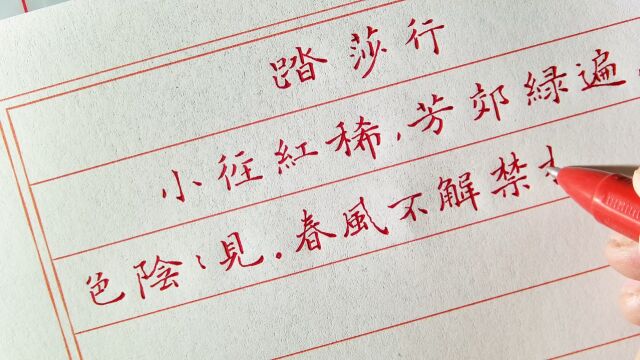 踏莎行
小徑紅稀,芳郊綠遍,
色陰〻見。春風不解禁